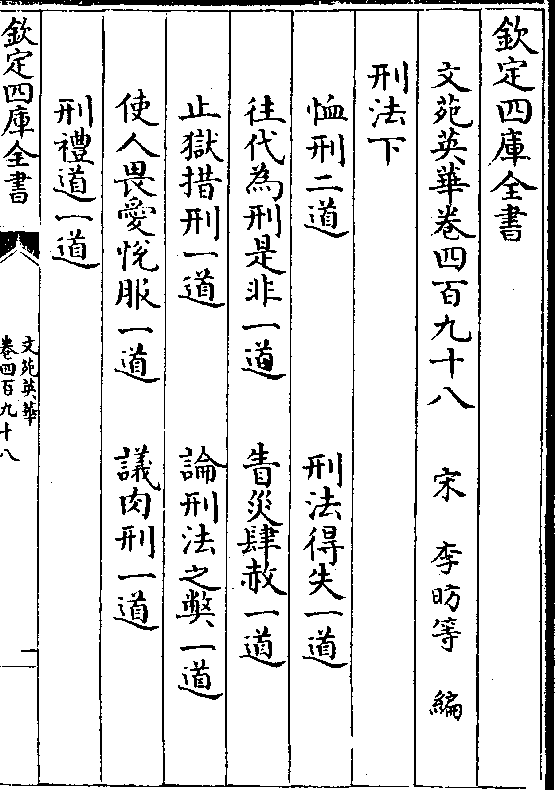 欽定四庫全書
文苑英華卷四百九十八　宋　李昉等　編
刑法下
恤刑二道　刑法得失一道
往代為刑是非一道　眚災肆赦一道
止獄措刑一道　論刑法之弊一道
使人畏愛悅服一道　議肉刑一道
刑禮道一道
欽定四庫全書
文苑英華
卷四百九十八
一